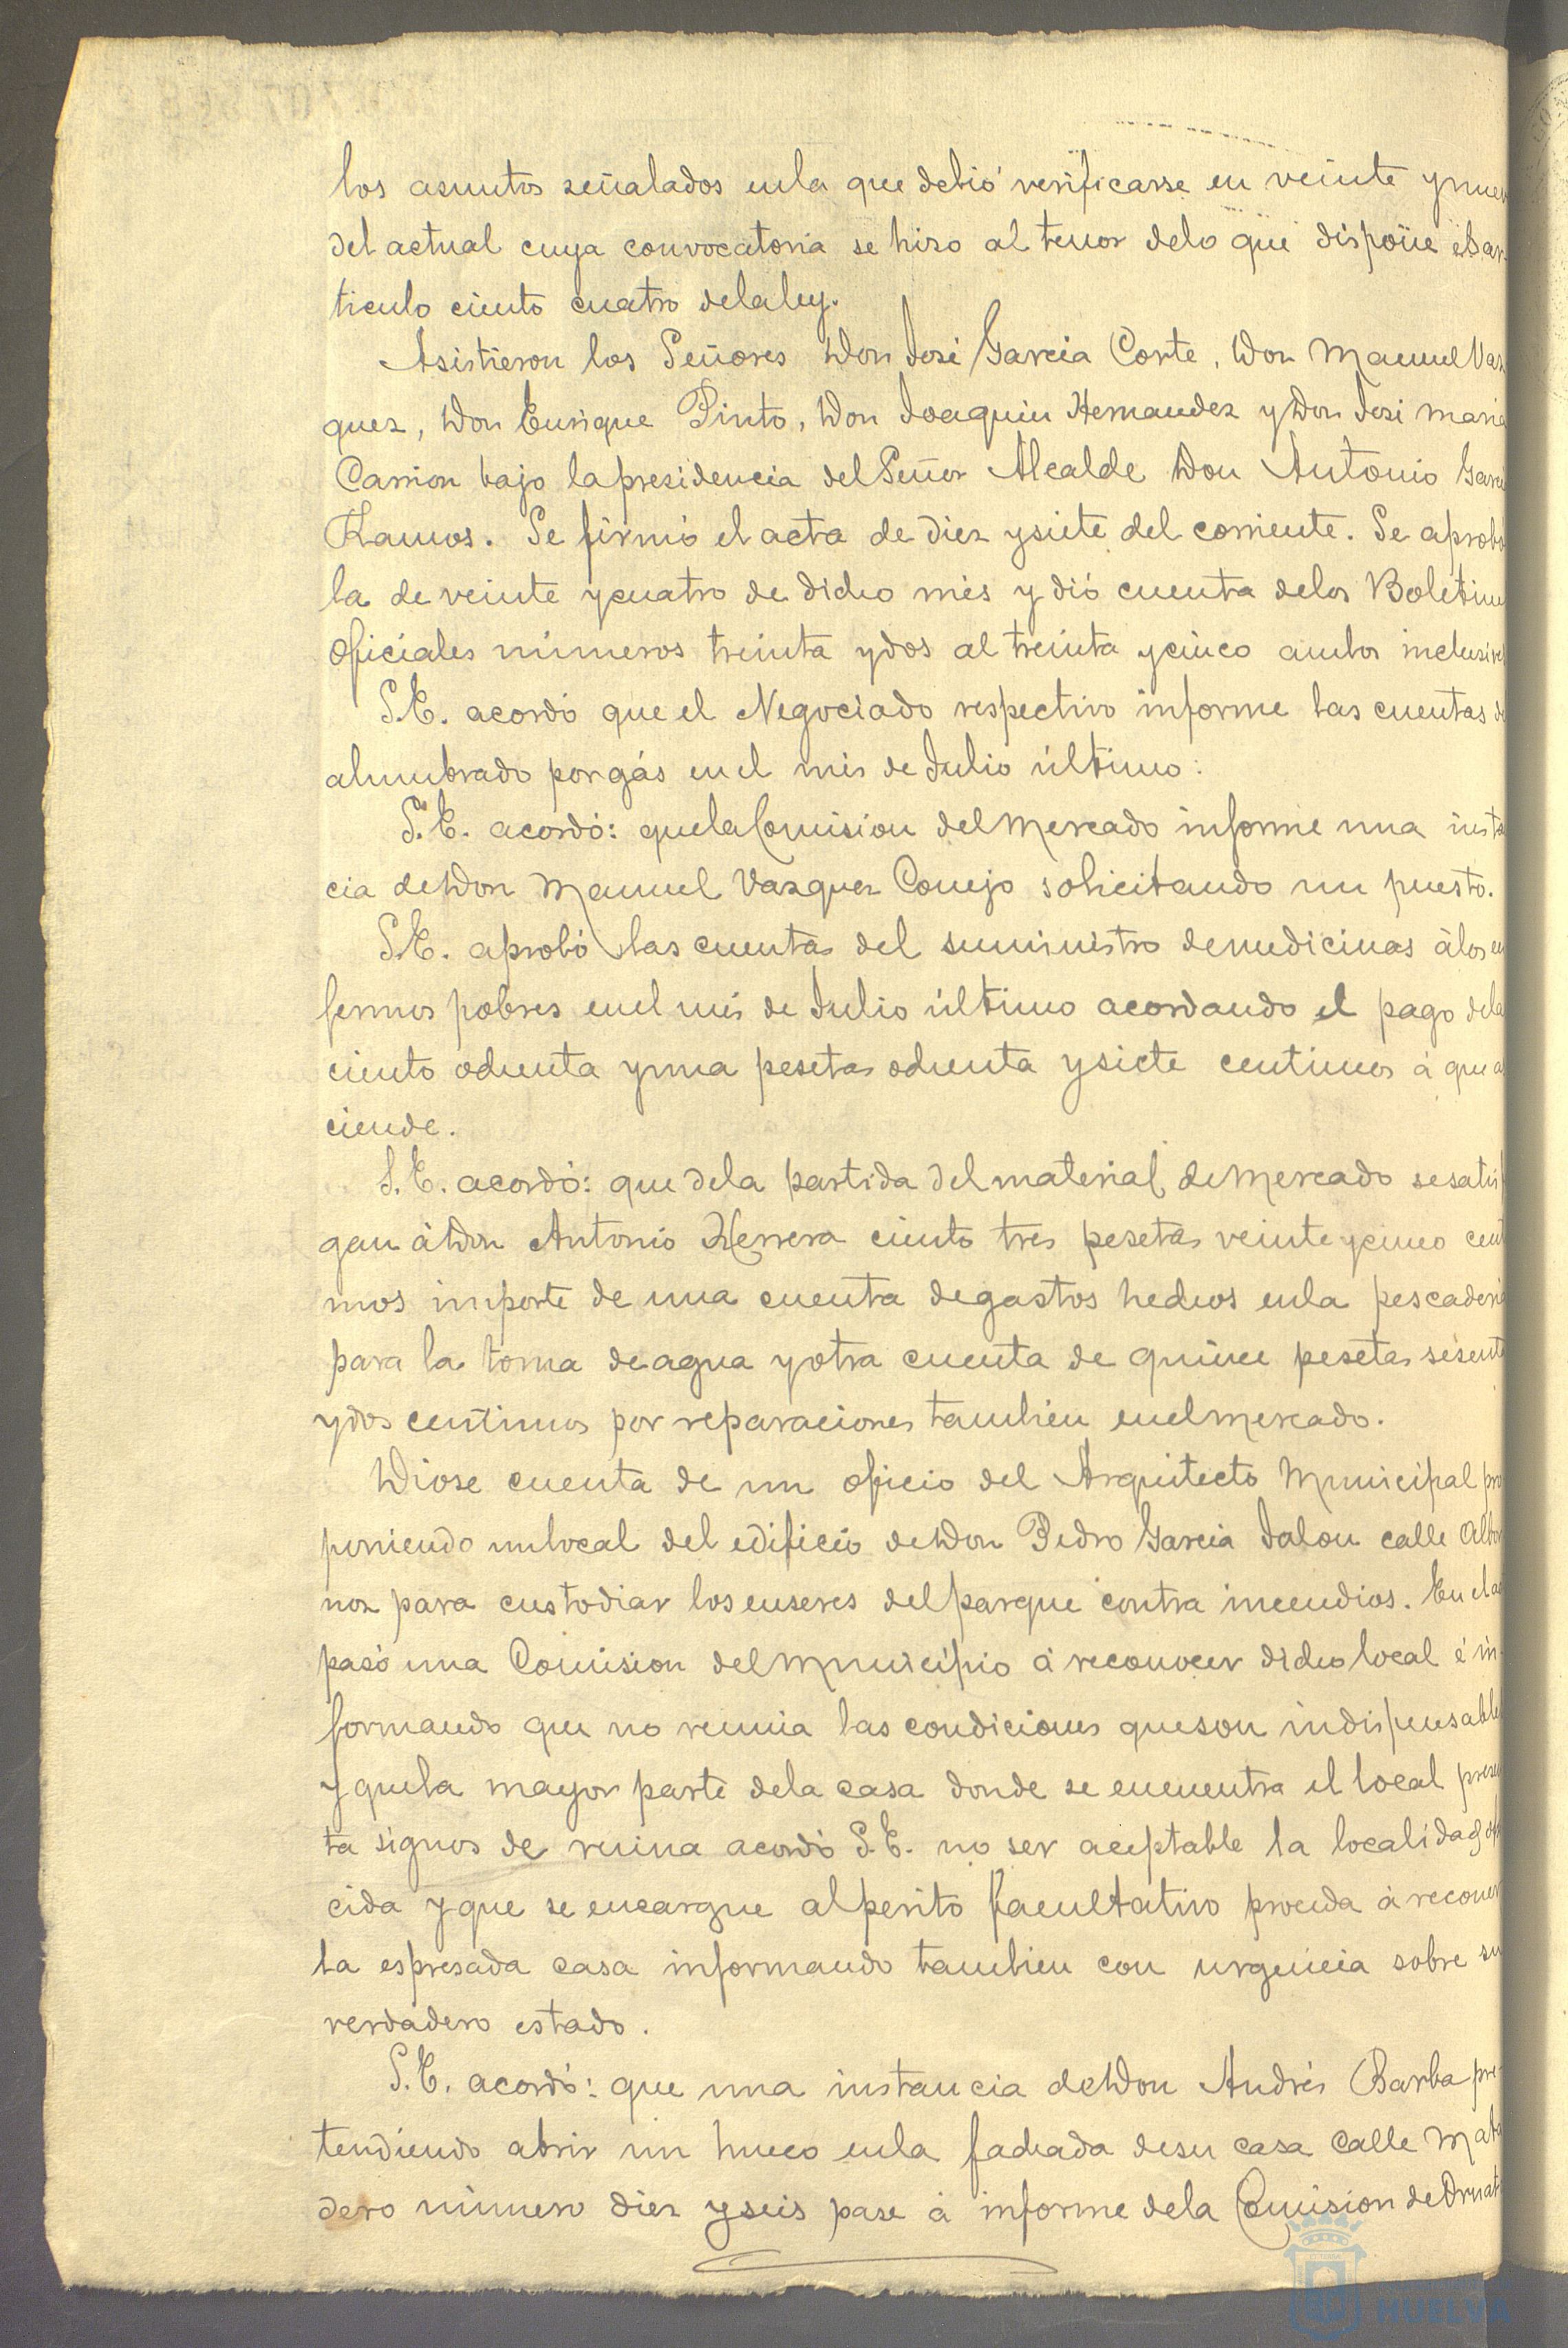 los asuntos señalados enla que debió verificarse en veinte ynuev
del actual cuya convocatoria se hizo al tenor delo que dispone elar
ticulo ciento cuatro delaley.
Asistieron los Señores Don José Garcia Corte, Don Manuel Vaz
quez, Don Enrique Pinto, Don Joaquin Hernandez y Don José maria
Carrion bajo lapresidencia del Señor Alcalde Don Antonio Garci
Ramos. Se firmó el acta de diez ysiete del corriente. Se aprobó
la de veinte ycuatro de dicho més y dió cuenta delos Boletine
Oficiales números treinta ydos al treinta ycinco ambos inclusive
S.E. acordó que el Negociado respectivo informe las cuentas de
alumbrado porgás enel més de Julio último:
S.E. acordó: quelaComision delMercado informe una insta
cia deDon Manuel Vazquez Conejo solicitando un puesto.
S.E. aprobó las cuentas del suministro demedicinas álos en
fermos pobres enel més de Julio último acordando el pago dela
ciento ochenta yuna pesetas ochenta ysiete centimos á que a
ciende.
S.E. acordó: que dela partida del material deMercado sesatisf
gan áDon Antonio Herrera ciento tres pesetas veinte ycinco cent
mos importe de una cuenta degastos hechos enla pescaderi
para la toma deagua yotra cuenta de quince pesetas sesent
ydos centimos por reparaciones tambien enelmercado.
Diose cuenta de un oficio del Arquitecto Municipal pro
poniendo unlocal del edificio deDon Pedro Garcia Jalon calle Albor
noz para custodiar losenseres delparque contra incendios. En elac
pasó una Comision delMunicipio á reconocer dicho local é in-
formando que no reunia las condiciones queson indispensable
y quela mayor parte dela casa donde se encuentra el local presen
ta signos de ruina acordó S.E. no ser aceptable la localidad
cida y que se encargue alperito facultativo proceda á reconer
la espresada casa informando tambien con urgencia sobre su
verdadero estado.
S.E. acordó: que una instancia deDon Andrés Barba pre-
tendiendo abrir un hueco enla fachada desu casa calle Mata
dero número diez yseis pase á informe dela Comision deOrnat
HUELVA